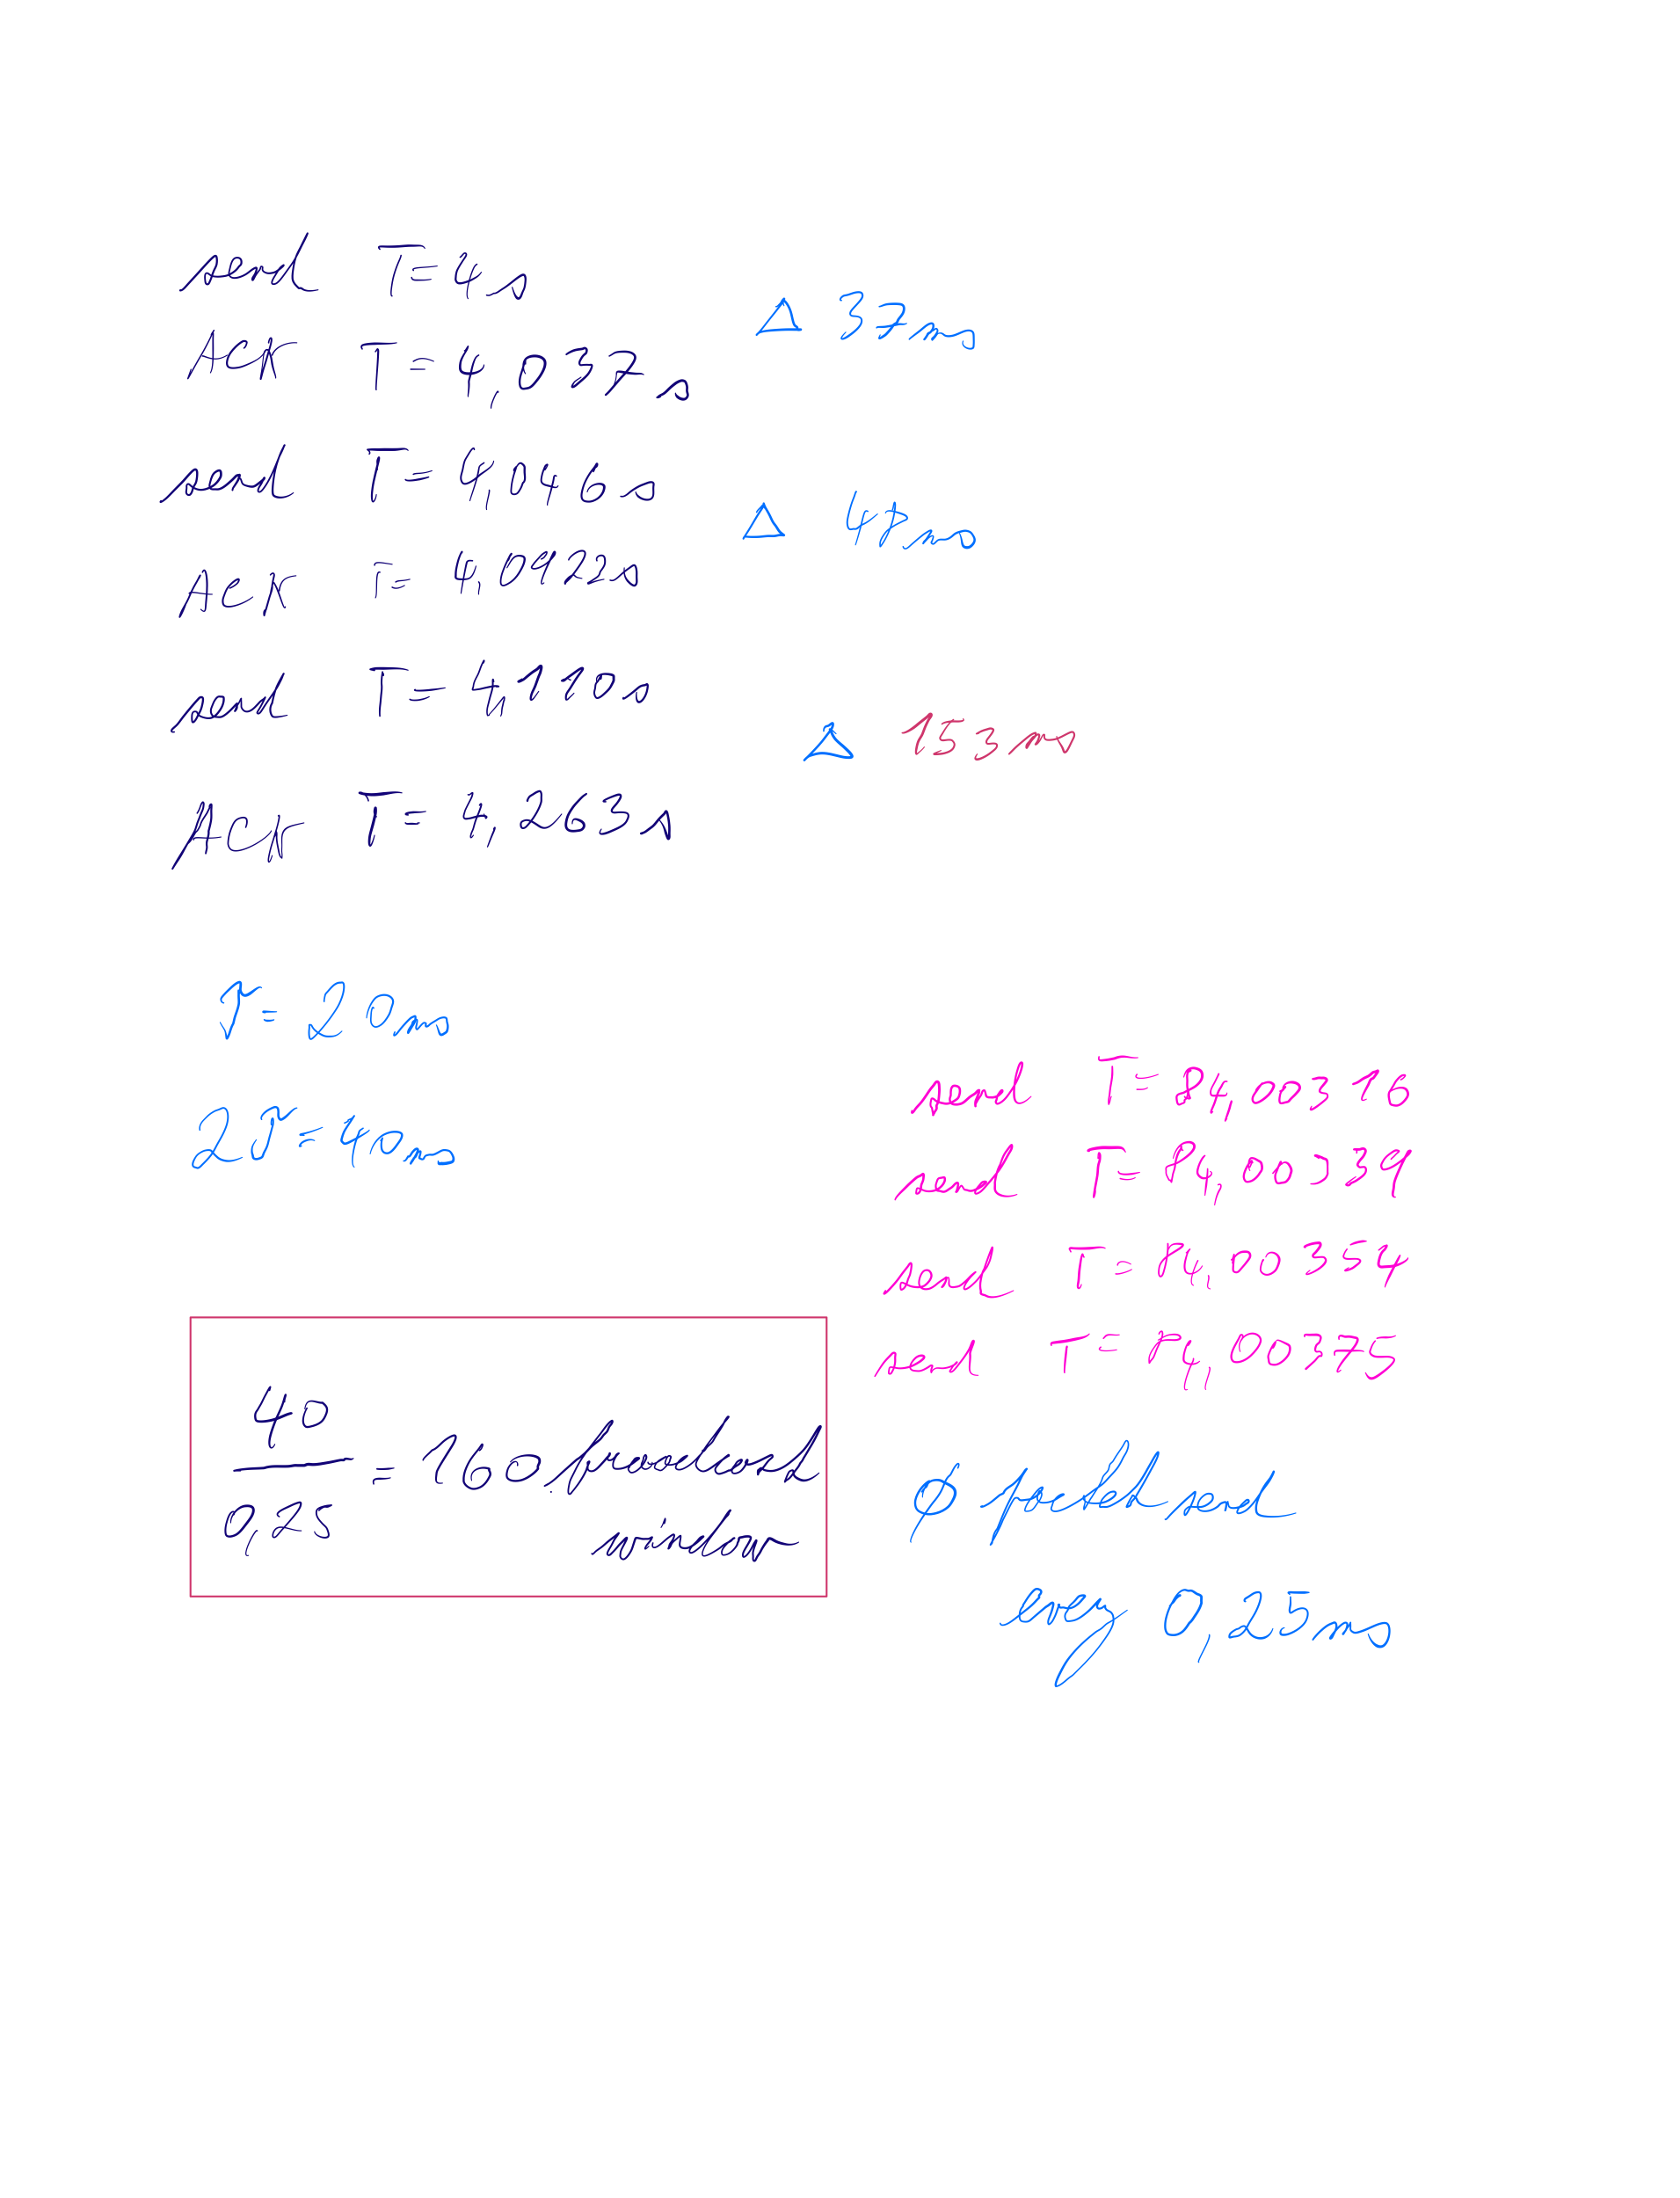 send T=4s
Δ 37ms
ACK T=4,037s
send T=4,046s
Δ 47ms
ACK T=4,0922s
send T=4,110s
Δ 153ms
ACK T=4,263s
T=20ms
2T=40ms
send T=84,00316
send T=84,00339
send T=84,00354
send T=84,00375
40
0,25
=160
window
ϕ packet send
every 0,25ms